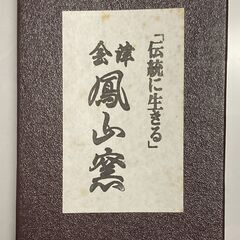 「伝統に生きる」
会津
鳳山窯